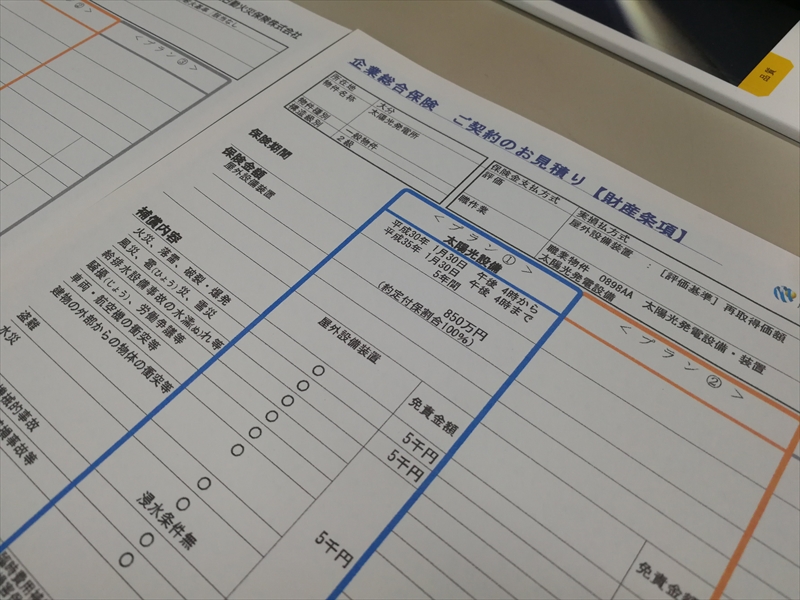 動火災保険株式会社
＜プラン③＞
企業総合保険 ご契約のお見積り【財産条項】
所在地 大分
物件名称 太陽光発電所
物件種別 一般物件
構造級別 2級
保険金支払方式 実損払方式
評価 屋外設備装置 : [評価基準] 再取得価額
職作業 職業物件 0898AA 太陽光発電設備・装置
太陽光発電設備
＜プラン①＞
太陽光設備
＜プラン②＞
保険期間
平成30年 1月30日 午後 4時から
平成35年 1月30日 午後 4時まで
5年間
保険金額
屋外設備装置
850万円
(約定付保割合100%)
補償内容
屋外設備装置
免責金額
火災、落雷、破裂・爆発 ○ 5千円
風災、雹(ひょう)災、雪災 ○ 5千円
給排水設備事故の水濡(ぬ)れ等 ○
騒擾(じょう)、労働争議等 ○
車両・航空機の衝突等 ○
建物の外部からの物体の衝突等 ○
盗難 ○
水災 浸水条件無
機械的事故 ○ 5千円
機事故等 ○
免責金額